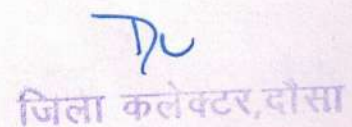 जिला कलेक्टर,दौसा